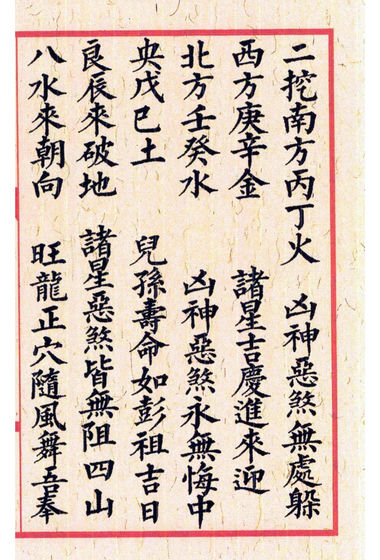 二挖南方丙丁火 凶神惡煞無處躲
西方庚辛金 諸星吉慶進來迎
北方壬癸水 凶神惡煞永無悔中
央戊己土 兒孫壽命如彭祖吉日
良辰來破地 諸星惡煞皆無阻四山
八水來朝向 旺龍正穴隨風舞吾奉